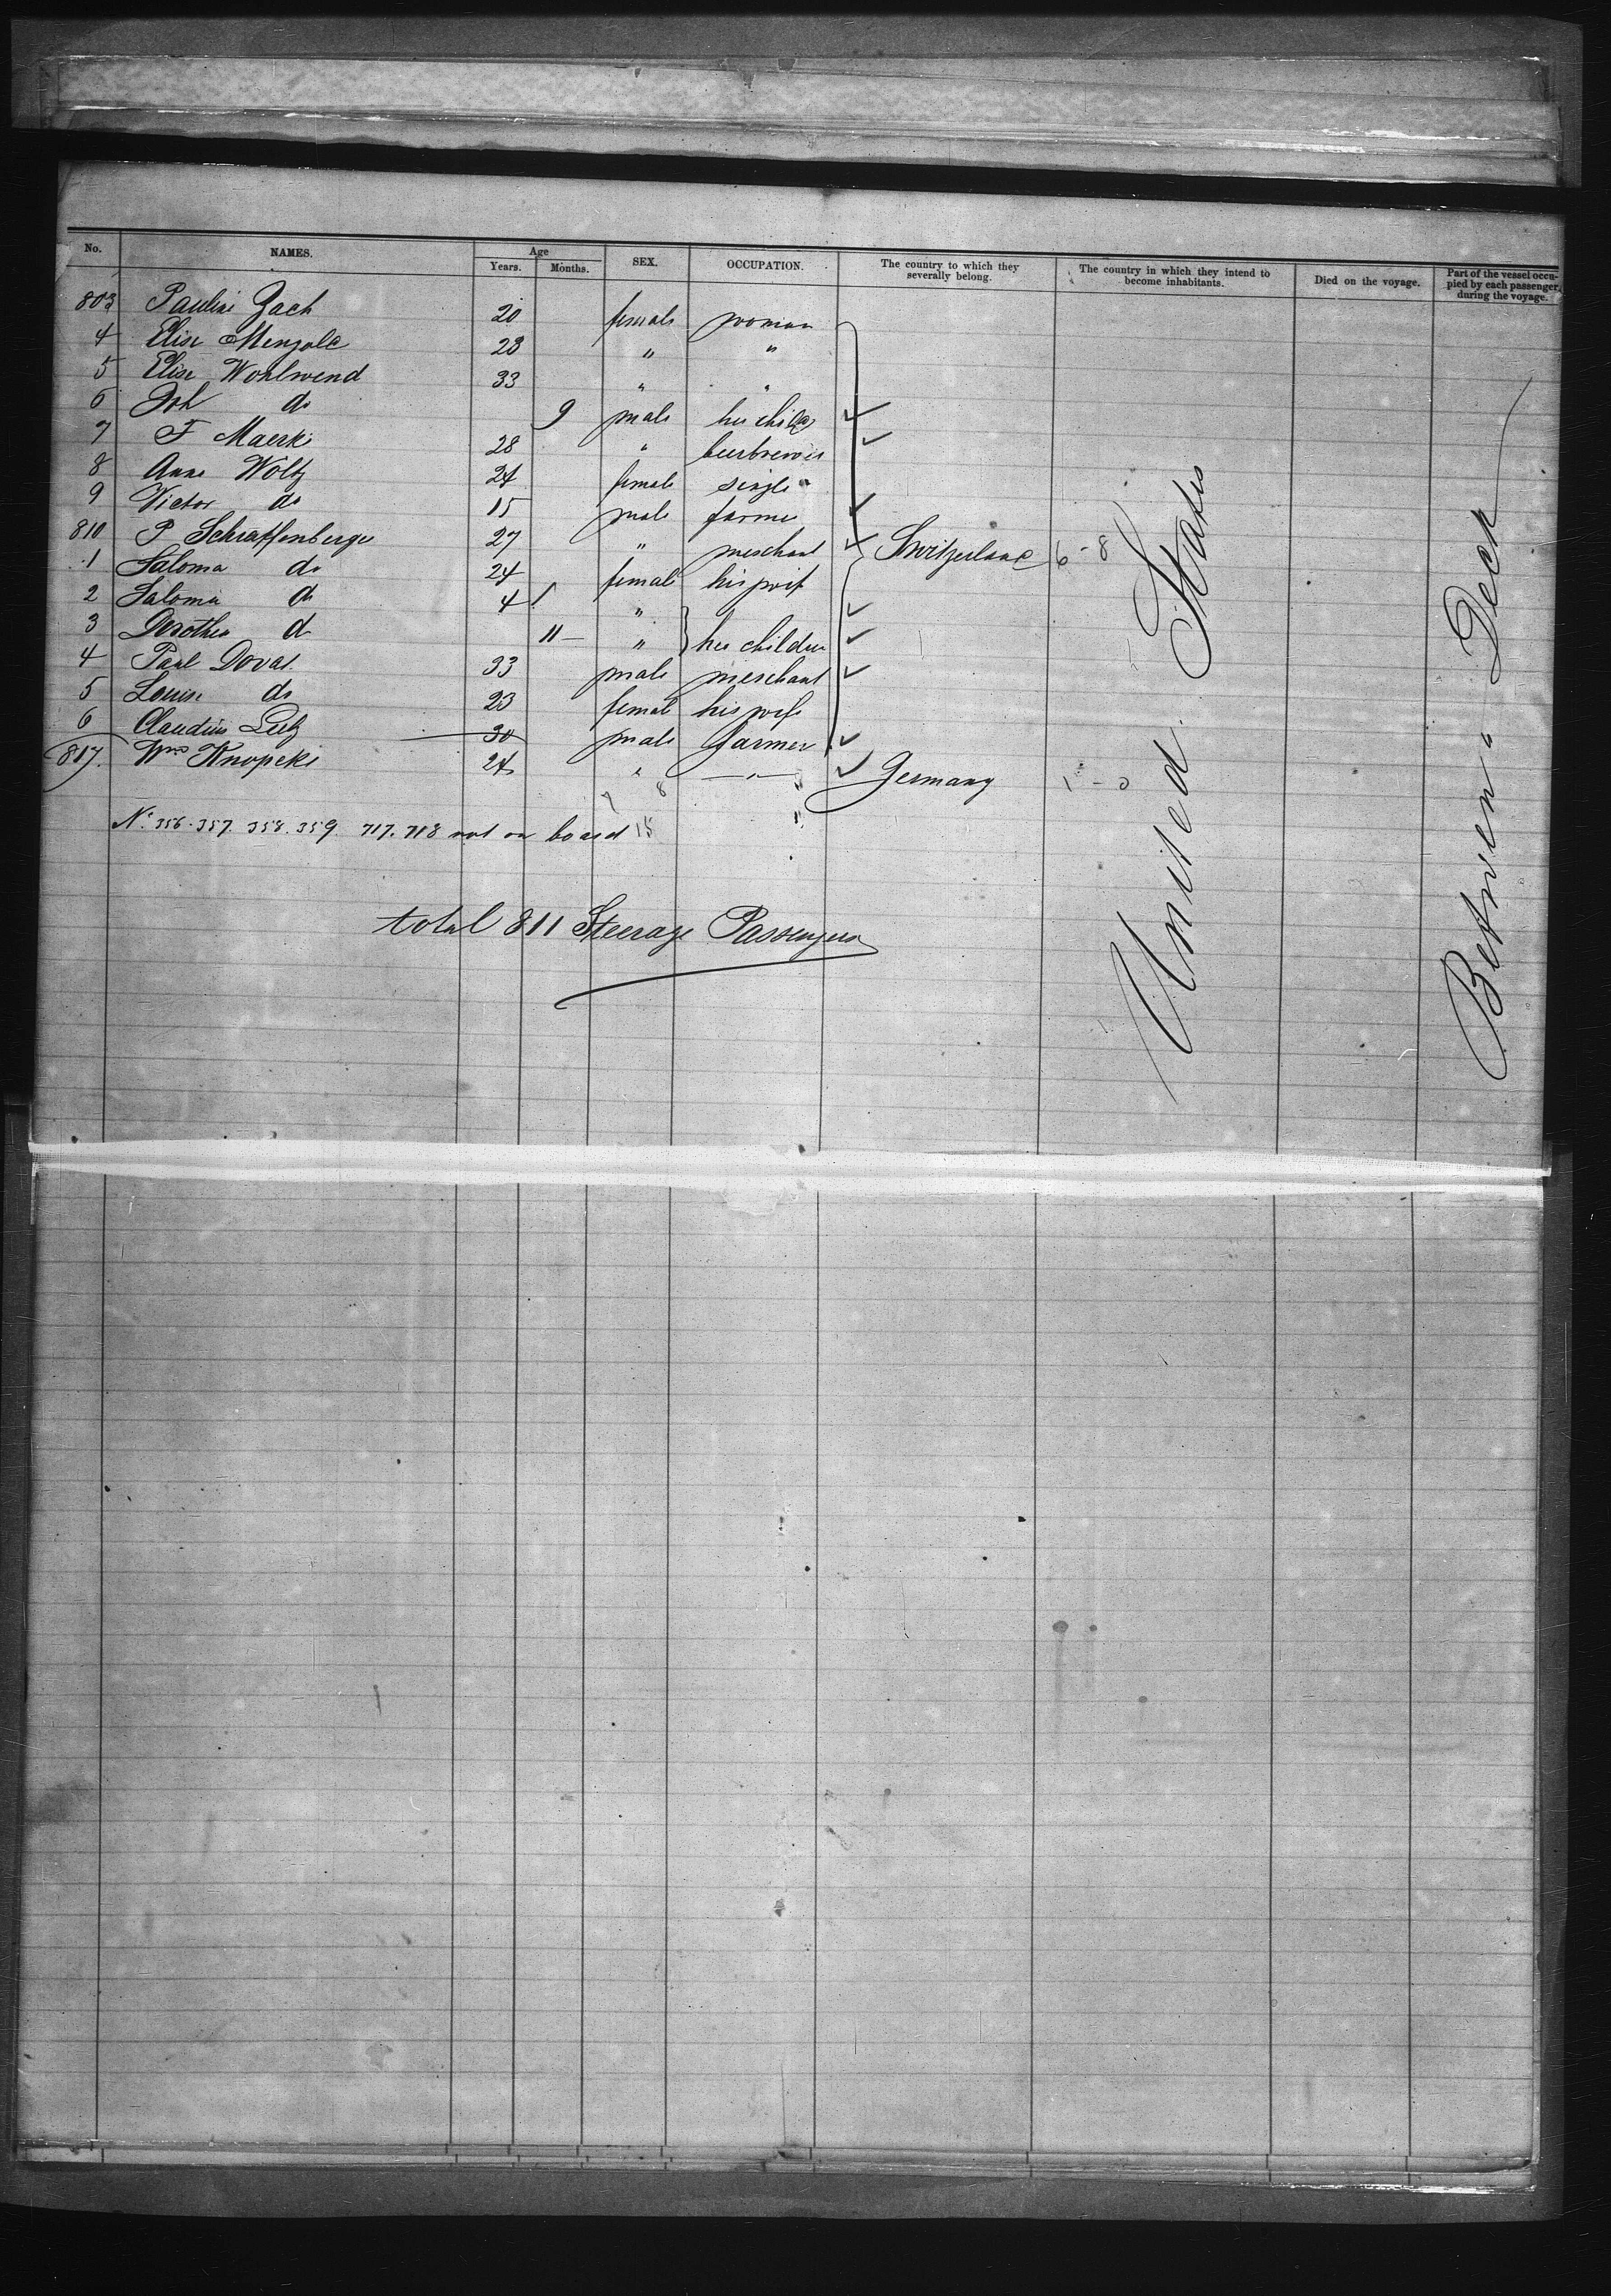 No. NAMES. Age Years. Months. SEX. OCCUPATION. The country to which they severally belong. The country in which they intend to become inhabitants. Died on the voyage. Part of the vessel occupied by each passenger, during the voyage.
803 Pauline Zach 20 female woman
4 Elise Menzole 23 " "
5 Elise Wohlwend 33 " "
6 Joh do 9 male her child
7 F Maerki 28 " beerbrewer
8 Anna Woltz 24 female single
9 Victor do 15 male farmer
810 P Schraffenberger 27 " merchant Switzerland 6 - 8
1 Saloma do 24 female his wife
2 Saloma do 4 "
3 Dorothea do 11 " her children
4 Paul Doval 33 male merchant
5 Louise do 23 female his wife
6 Claudius Lutz 30 male farmer
817. Wm Knopeki 24 " " Germany 1 - 0
United States
Between " Deck
No. 356. 357. 358. 359. 717. 718 not on board
total 811 Steerage Passengers